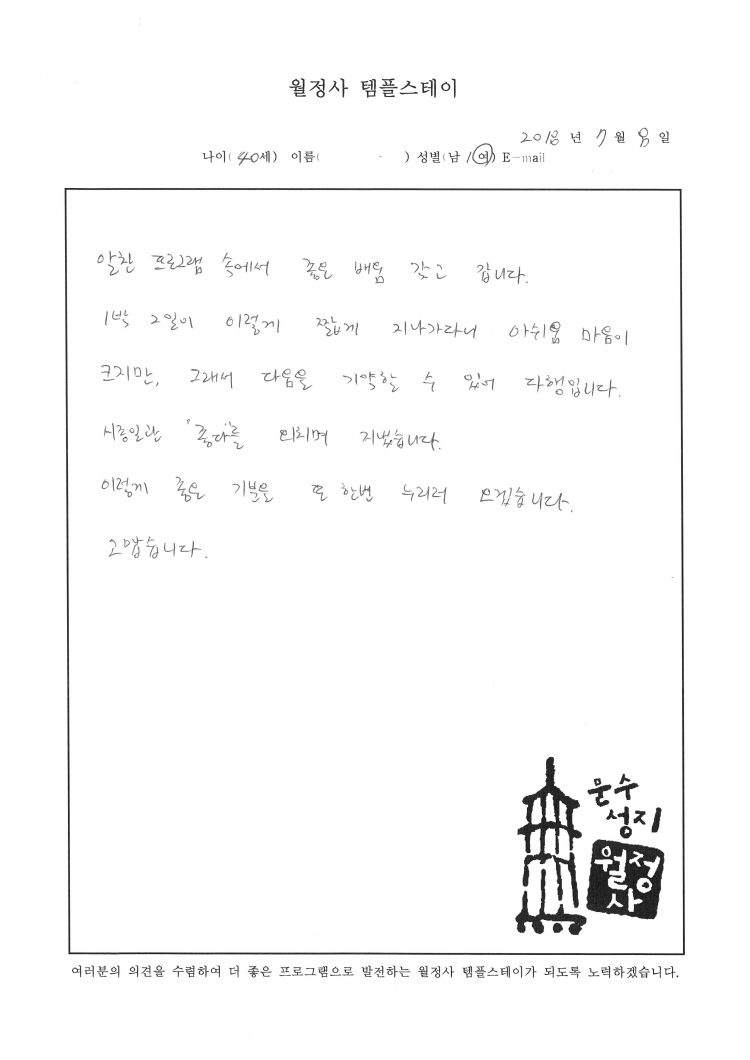 월정사 템플스테이
2018 년 7 월 8 일
나이( 40세) 이름( ) 성별(남 / 여) E-mail
알찬 프로그램 속에서 좋은 배움 갖고 갑니다.
1박 2일이 이렇게 짧게 지나가다니 아쉬운 마음이
크지만, 그래서 다음을 기약할 수 있어 다행입니다.
시종일관 "좋다"를 외치며 지냈습니다.
이렇게 좋은 기분을 또 한번 누리러 오겠습니다.
고맙습니다.
문수
성지
월정
사
여러분의 의견을 수렴하여 더 좋은 프로그램으로 발전하는 월정사 템플스테이가 되도록 노력하겠습니다.